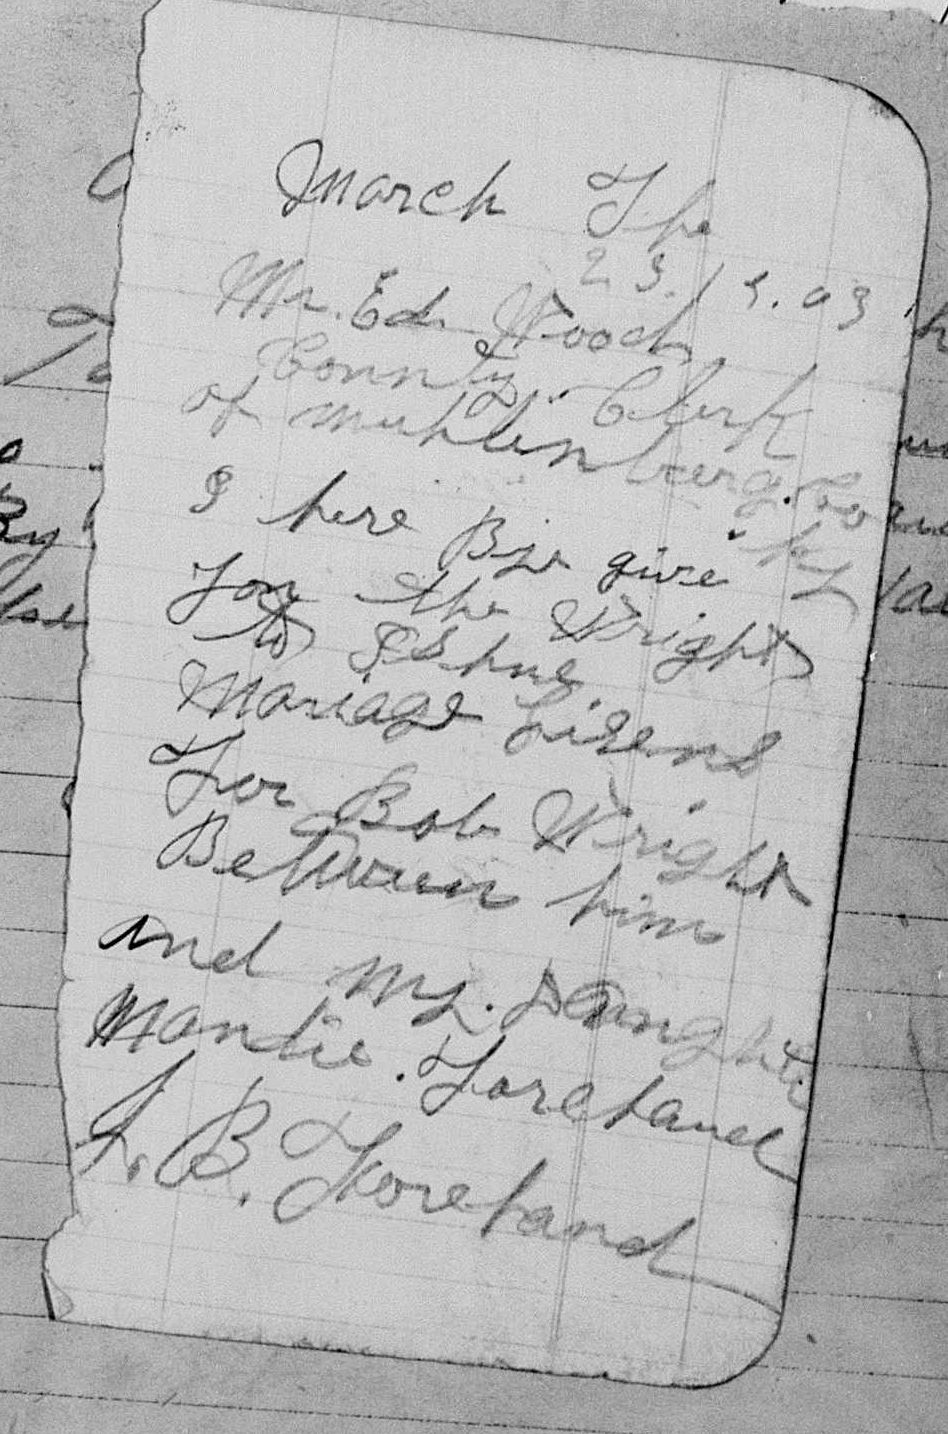 March The
23. 19.03
Mr. Ed. Wood
County Clerk
of muhlinberg. Co
Ky
I here Bye give
you the Wright
to Ishue
Mariage Lisens
For Bob Wright
Between him
and my. Daughter
Mandie. Forehand
L. B. Forehand